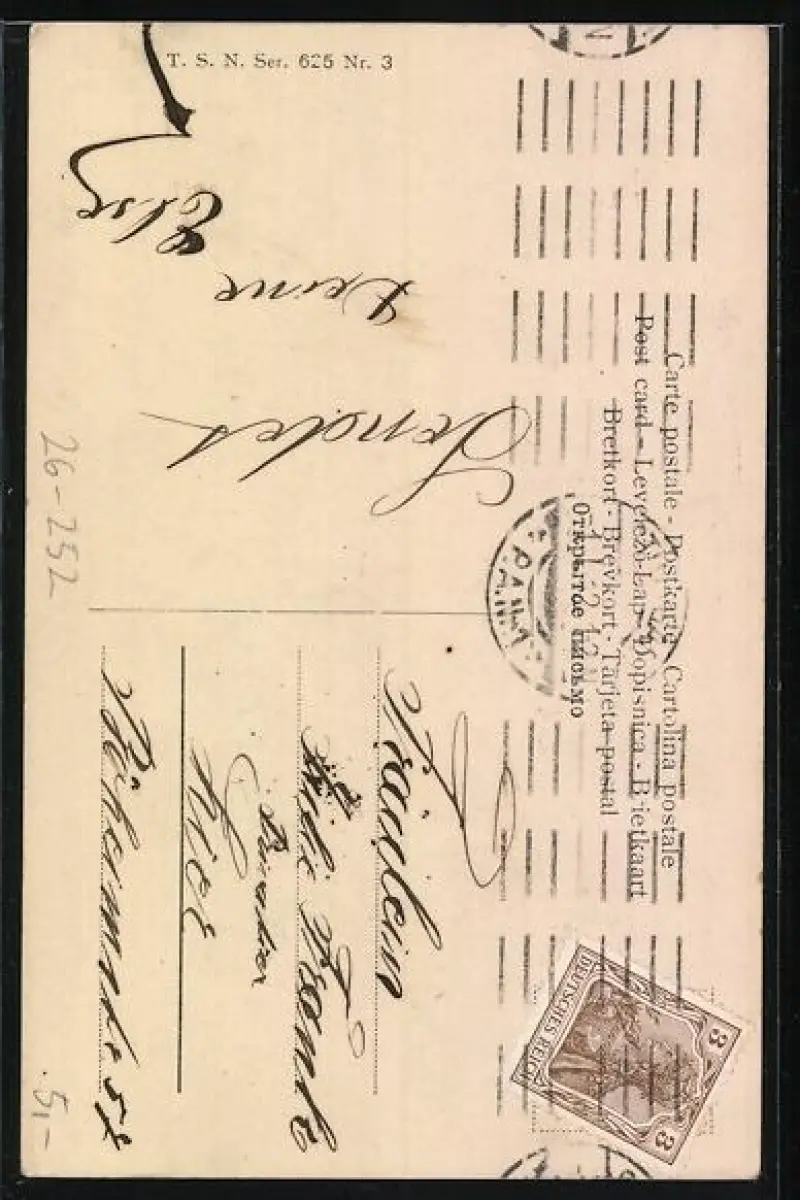 T. S. N. Ser. 625 Nr. 3
Carte postale - Postkarte - Cartolina postale
Post card - Levelező-Lap - Dopisnica - Briefkaart
Brefkort - Brevkort - Tarjeta postal
Открытое письмо
Sendet
Deine
Else
Fräulein
Kiel
DEUTSCHES REICH
3
3
26-252
5,-